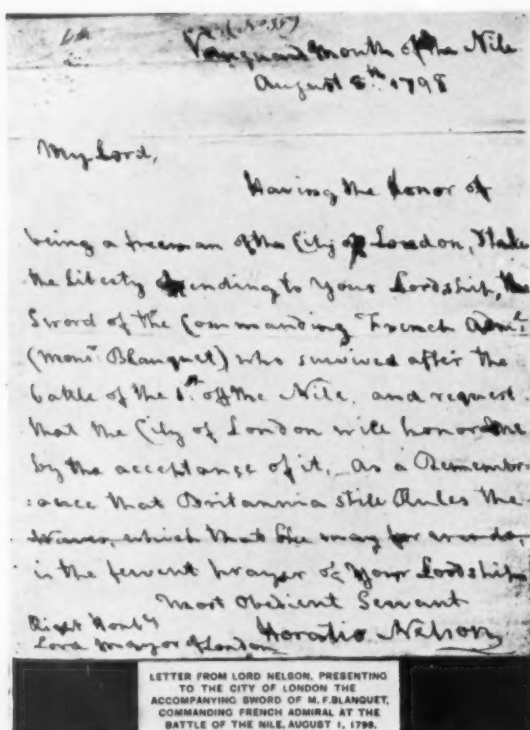 Vanguard Mouth of the Nile
August 8th 1798
My Lord,
Having the honor of
being a freeman of the City of London, I take
the Liberty of sending to Your Lordship, the
Sword of the Commanding French Adml:
(Monsr. Blanquet) who survived after the
battle of the 1st. off the Nile, and request
that the City of London will honor me
by the acceptance of it, as a Remembr
:ance that Britannia still Rules the
Waves, which that She may for ever do,
is the fervent prayer of Your Lordships
Most Obedient Servant
Right Honble
Lord Mayor of London
Horatio Nelson
LETTER FROM LORD NELSON, PRESENTING
TO THE CITY OF LONDON THE
ACCOMPANYING SWORD OF M.F.BLANQUET,
COMMANDING FRENCH ADMIRAL AT THE
BATTLE OF THE NILE, AUGUST 1, 1798.